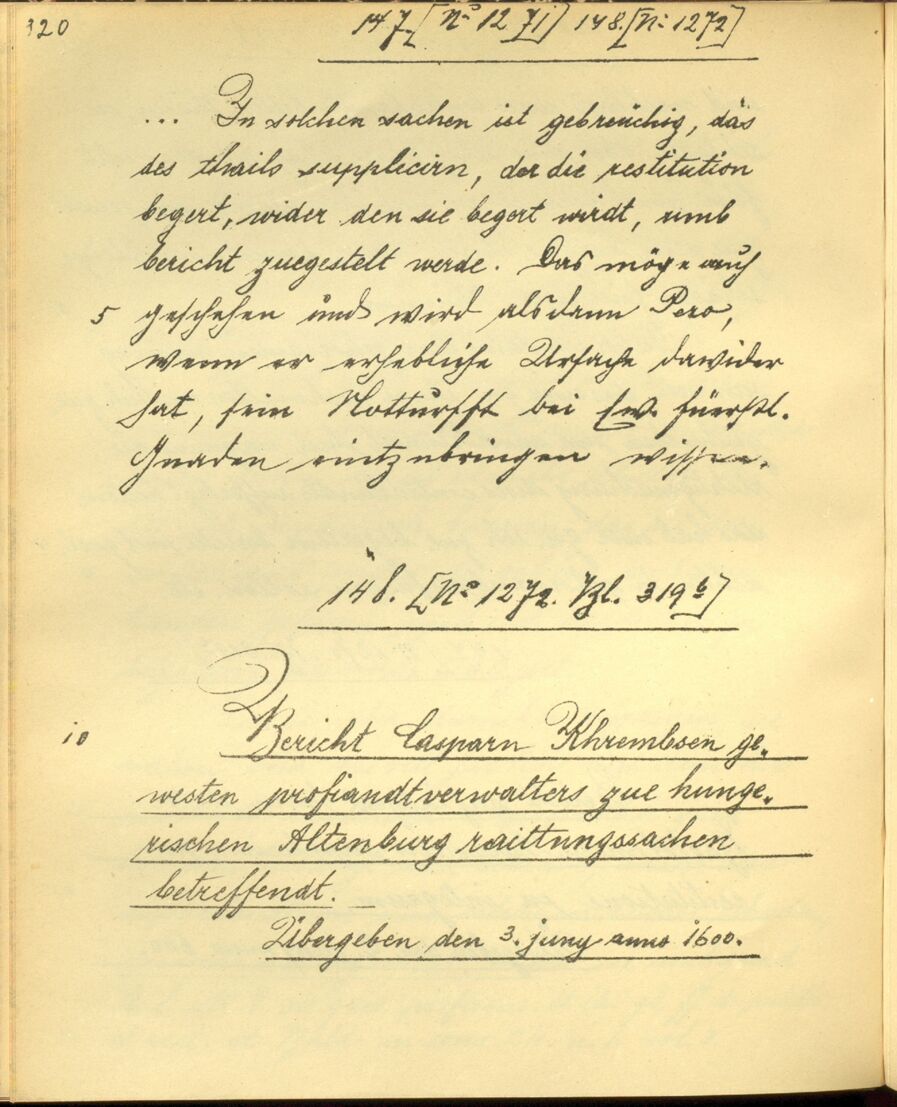 320
147. [No 1271] 148. [No 1272]
... In solchen sachen ist gebreüchig, das
des thails supplicirn, der die restitution
begert, wider den sie begert wirdt, umb
bericht zuegestelt werde. Das möge auch
5 geschehen und wird alsdann Pero,
wenn er erhebliche Ursache dawider
hat, sein Notturfft bei Ew. füerstl.
Gnaden eintzubringen wissen.
148. [No 1272. Bl. 319b]
10 Bericht Casparn Khrembsen ge-
westen profiandtverwalters zue hunge-
rischen Altenburg raittungssachen
betreffendt.
Übergeben den 3. juny anno 1600.